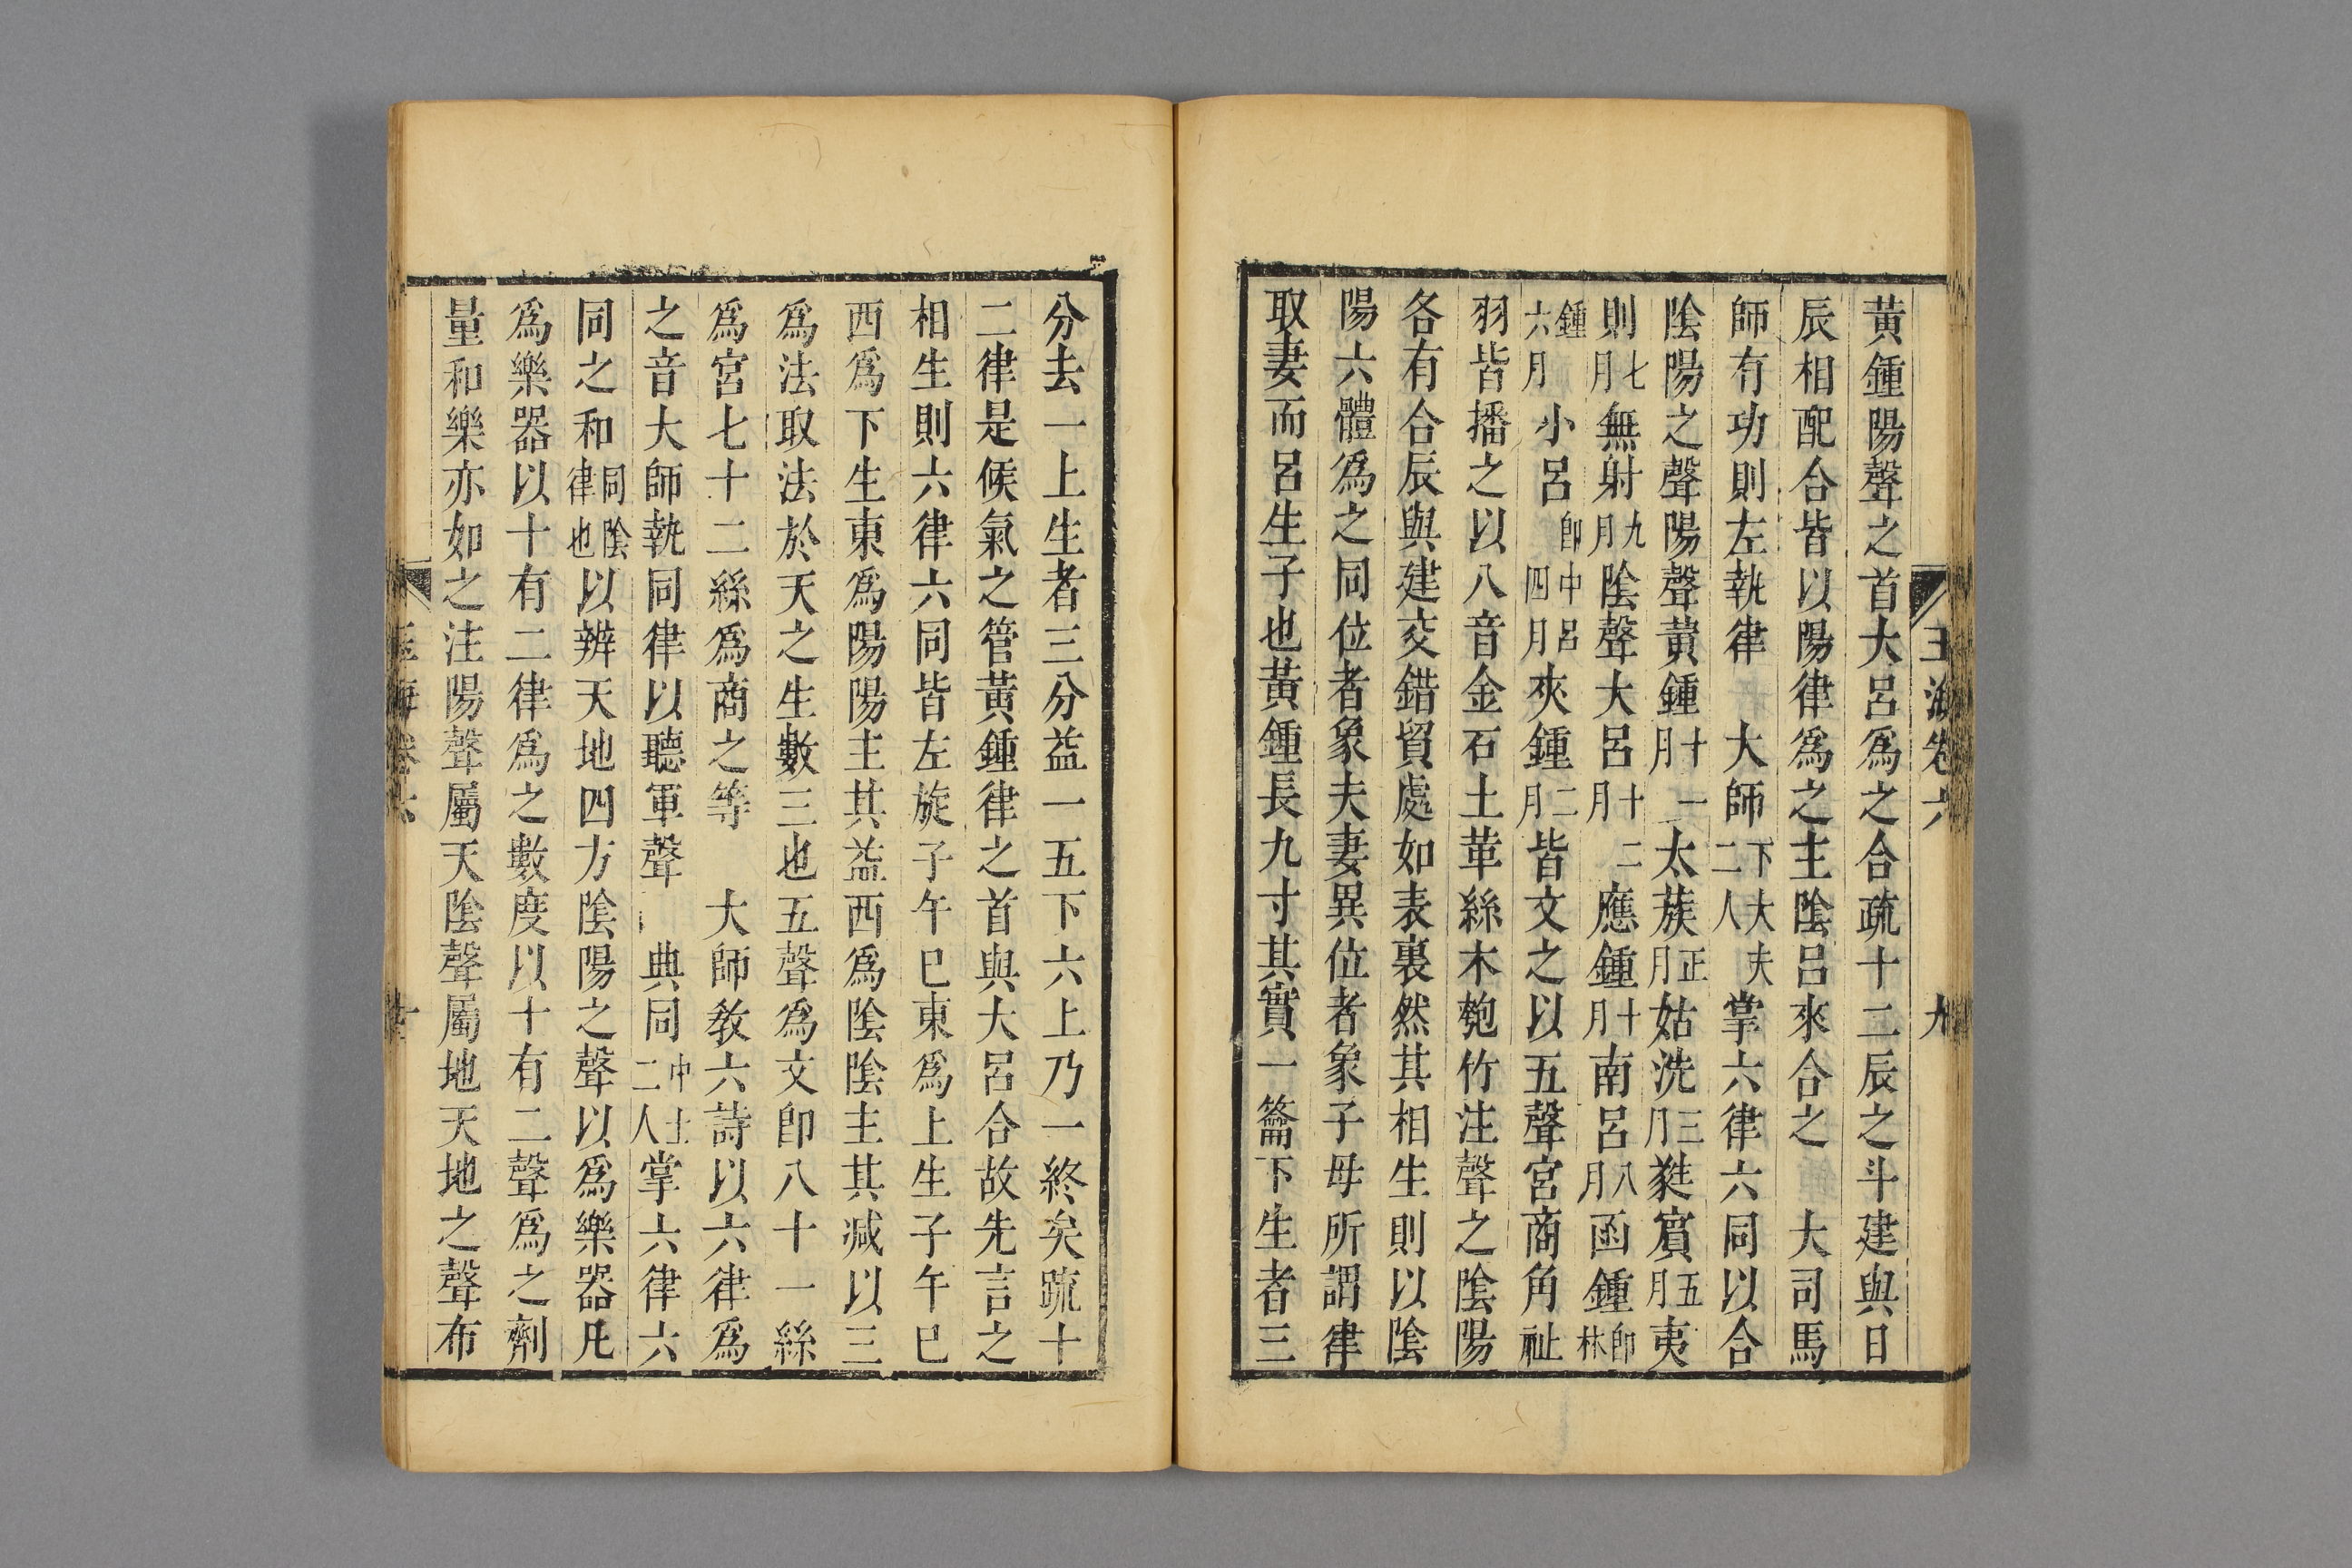 玉海卷六 九
黃鍾陽聲之首大呂爲之合疏十二辰之斗建與日
辰相配合皆以陽律爲之主陰呂來合之 大司馬
師有功則左執律 大師下大夫二人掌六律六同以合
陰陽之聲陽聲黃鍾十一月太蔟正月姑洗三月蕤賔五月夷
則七月無射九月陰聲大呂十二月應鍾十月南呂八月函鍾卽林
鍾六月小呂卽中呂四月夾鍾二月皆文之以五聲宮商角祉
羽皆播之以八音金石土革絲木匏竹注聲之陰陽
各有合辰與建交錯貿處如表裏然其相生則以陰
陽六體爲之同位者象夫妻異位者象子母所謂律
取妻而呂生子也黃鍾長九寸其實一籥下生者三
分去一上生者三分益一五下六上乃一終矣疏十
二律是候氣之管黃鍾律之首與大呂合故先言之
相生則六律六同皆左旋子午巳東爲上生子午巳
西爲下生東爲陽陽主其益西爲陰陰主其减以三
爲法取法於天之生數三也五聲爲文卽八十一絲
爲宮七十二絲爲商之等 大師敎六詩以六律爲
之音大師執同律以聽軍聲 典同中士二人掌六律六
同之和同陰律也以辨天地四方陰陽之聲以爲樂器凡
爲樂器以十有二律爲之數度以十有二聲爲之劑
量和樂亦如之注陽聲屬天陰聲屬地天地之聲布